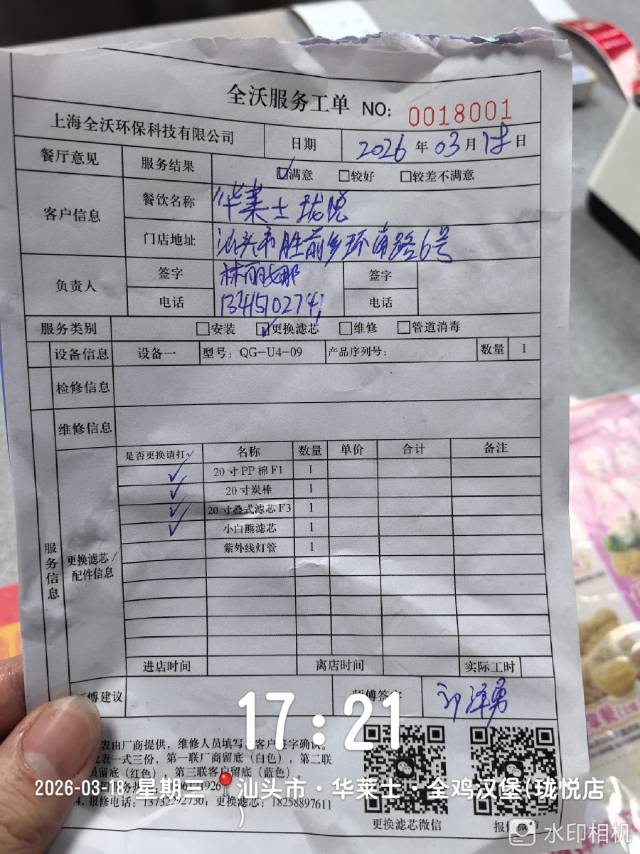 全沃服务工单 NO: 0018001
上海全沃环保科技有限公司 日期 2026 年 03 月 18 日
餐厅意见 服务结果 ☑满意 □较好 □较差不满意
客户信息 餐饮名称 华莱士 珑悦
门店地址 汕头市胜前乡环南路6号
负责人 签字 林丽娜 签字
电话 电话
服务类别 □安装 ☑更换滤芯 □维修 □管道消毒
设备信息 设备一 型号: QG-U4-09 产品序列号: 数量 1
检修信息
维修信息
服务信息
更换滤芯/配件信息
是否更换请打√ 名称 数量 单价 合计 备注
√ 20寸PP棉F1 1
√ 20寸炭棒 1
√ 20寸叠式滤芯F3 1
√ 小白熊滤芯 1
紫外线灯管 1
进店时间 离店时间 实际工时
傅建议
17:21
表由厂商提供, 维修人员填写, 客户签字确认。
表一式三份, 第一联厂商留底(白色), 第二联
留底(红色) 第三联客户留底(蓝色)
2026-03-18 星期三 汕头市·华莱士·全鸡汉堡(珑悦店
)
报修电话: 13732292730; 更换滤芯: 18258897611
更换滤芯微信
水印相机